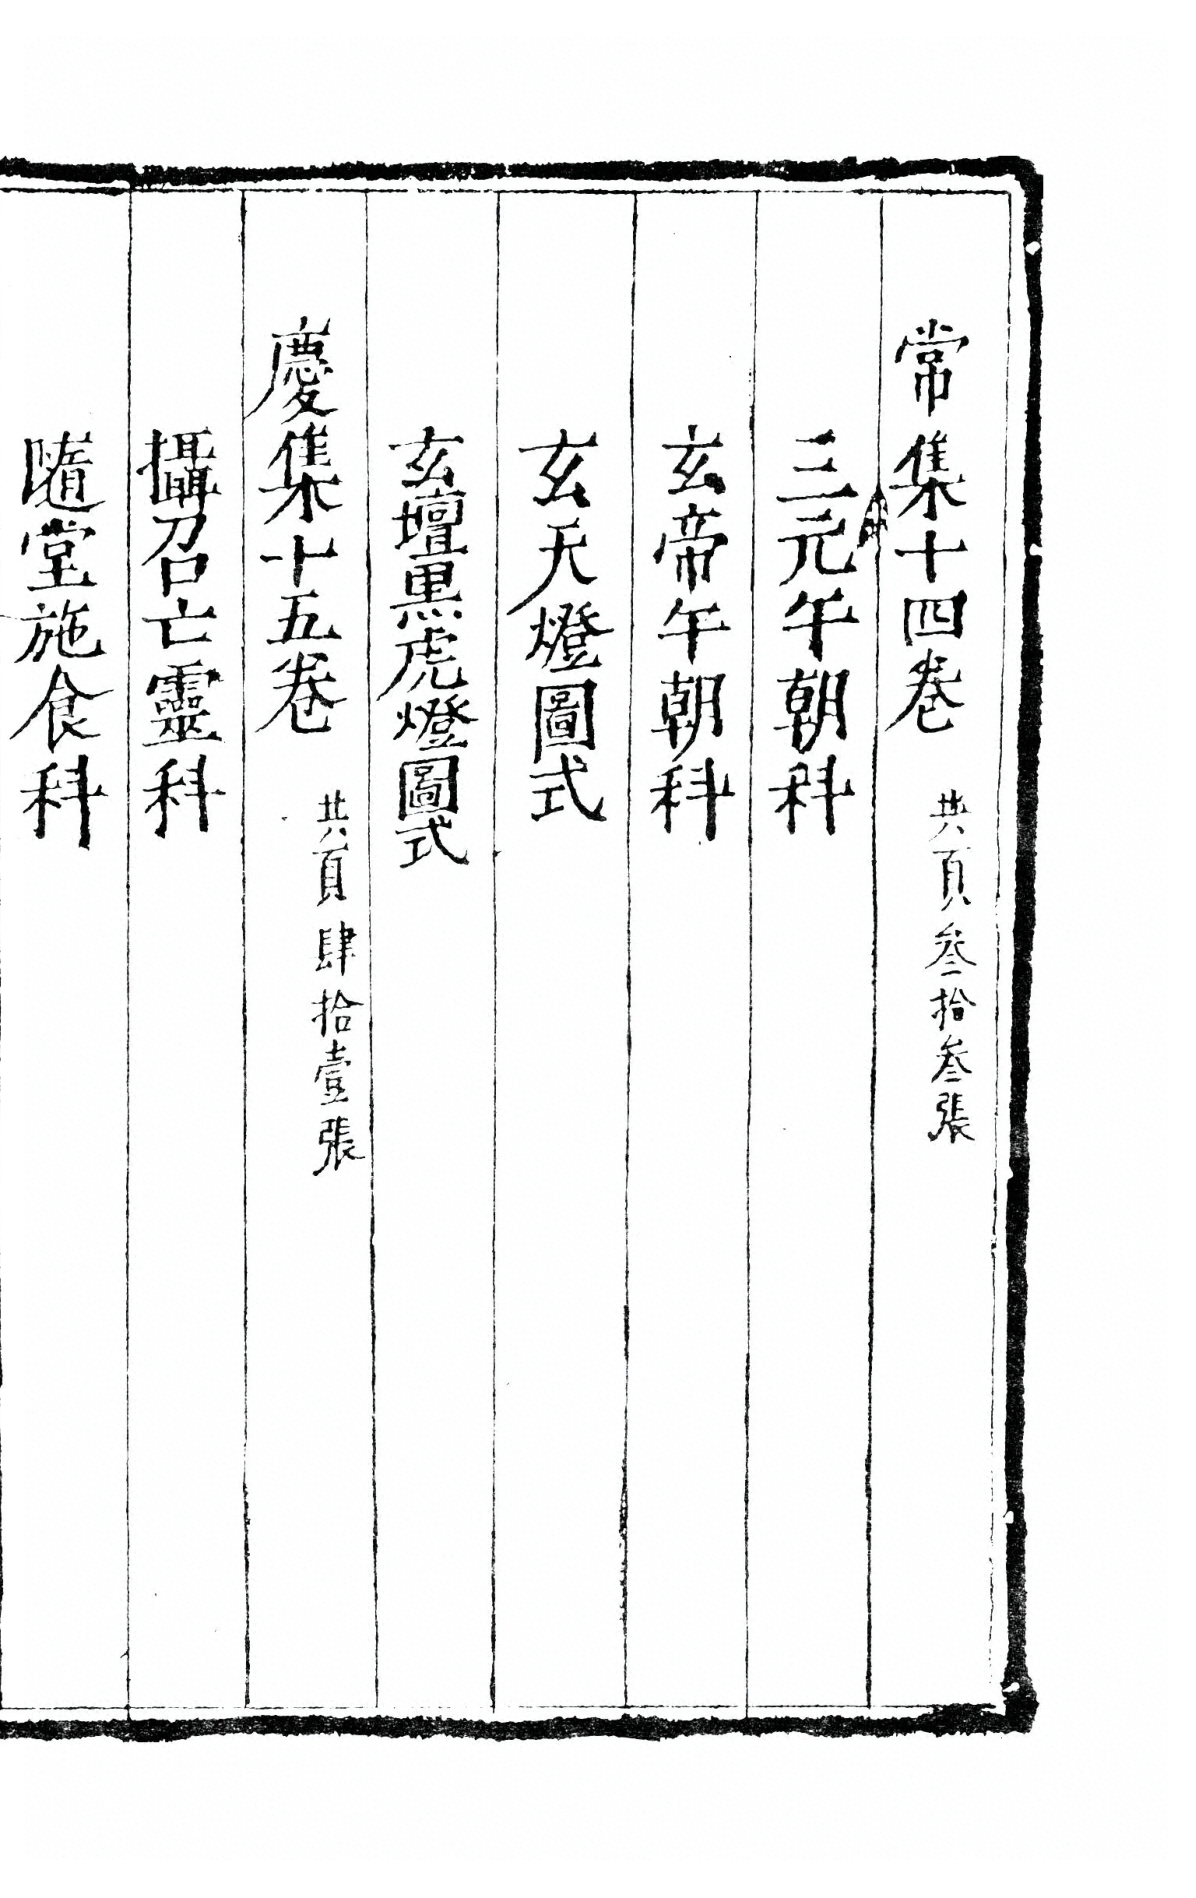 常集十四卷 共頁叁拾叁張
三元午朝科
玄帝午朝科
玄天燈圖式
玄壇黑虎燈圖式
慶集十五卷 共頁肆拾壹張
攝召亡靈科
隨堂施食科